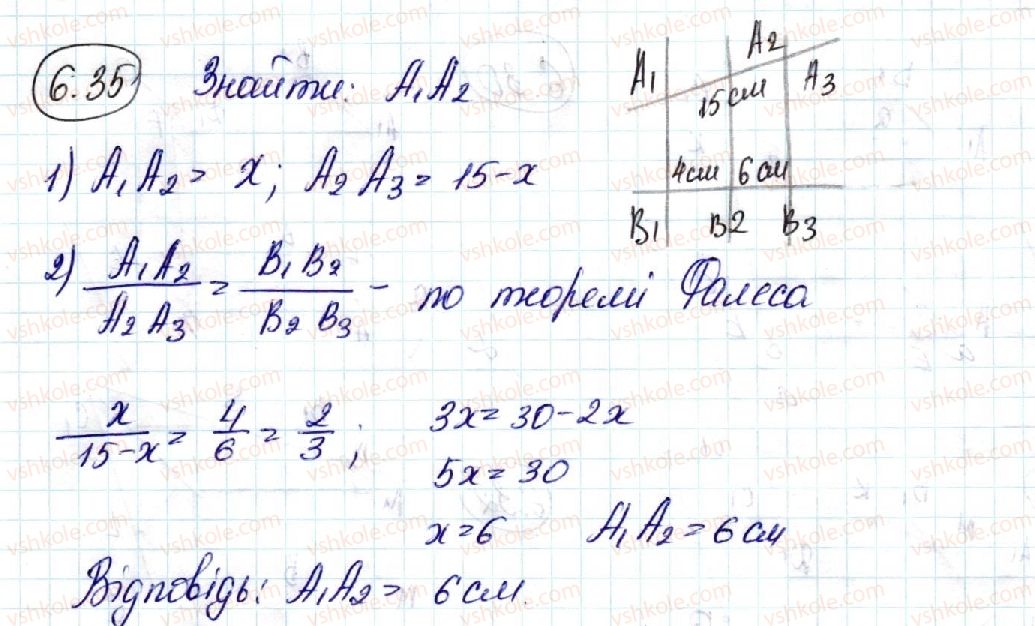 6.35 Знайти: A₁A₂
A₁ A₂ A₃
15 см
4см 6 см
B₁ B2 B₃
1) A₁A₂ = x; A₂A₃ = 15-x
2) A₁A₂ / A₂A₃ = B₁B₂ / B₂B₃ - по теоремі Фалеса
x / 15-x = 4/6 = 2/3; 3x = 30-2x
5x = 30
x = 6 A₁A₂ = 6 см
Відповідь: A₁A₂ = 6 см.
vshkole.com